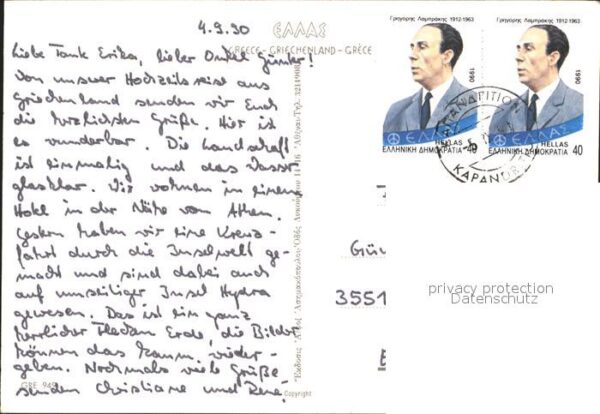 4.9.90
Liebe Tante Erika, lieber Onkel Günter!
Von unserer Hochzeitsreise aus
Griechenland senden wir Euch
die herzlichsten Grüße. Hier ist
es wunderbar. Die Landschaft
ist einmalig und das Wasser
glasklar. Wir wohnen in einem
Hotel in der Nähe von Athen.
Gestern haben wir eine Kreuz-
fahrt durch die Inselwelt ge-
macht und sind dabei auch
auf unsere Insel Hydra
gewesen. Das ist ein ganz
herrlicher Flecken Erde, die Bilder
können das kaum wieder-
geben. Nochmals viele Grüße
senden Christiane und René!
GRE 949
ΕΛΛΑΣ
GREECE - GRIECHENLAND - GRÈCE
Copyright
Γρηγόρης Λαμπράκης 1912-1963
1990
ΕΛΛΑΣ
HELLAS
ΕΛΛΗΝΙΚΗ ΔΗΜΟΚΡΑΤΙΑ 40
Γρηγόρης Λαμπράκης 1912-1963
1990
ΕΛΛΑΣ
HELLAS
ΕΛΛΗΝΙΚΗ ΔΗΜΟΚΡΑΤΙΑ 40
Gü
3551
privacy protection
Datenschutz